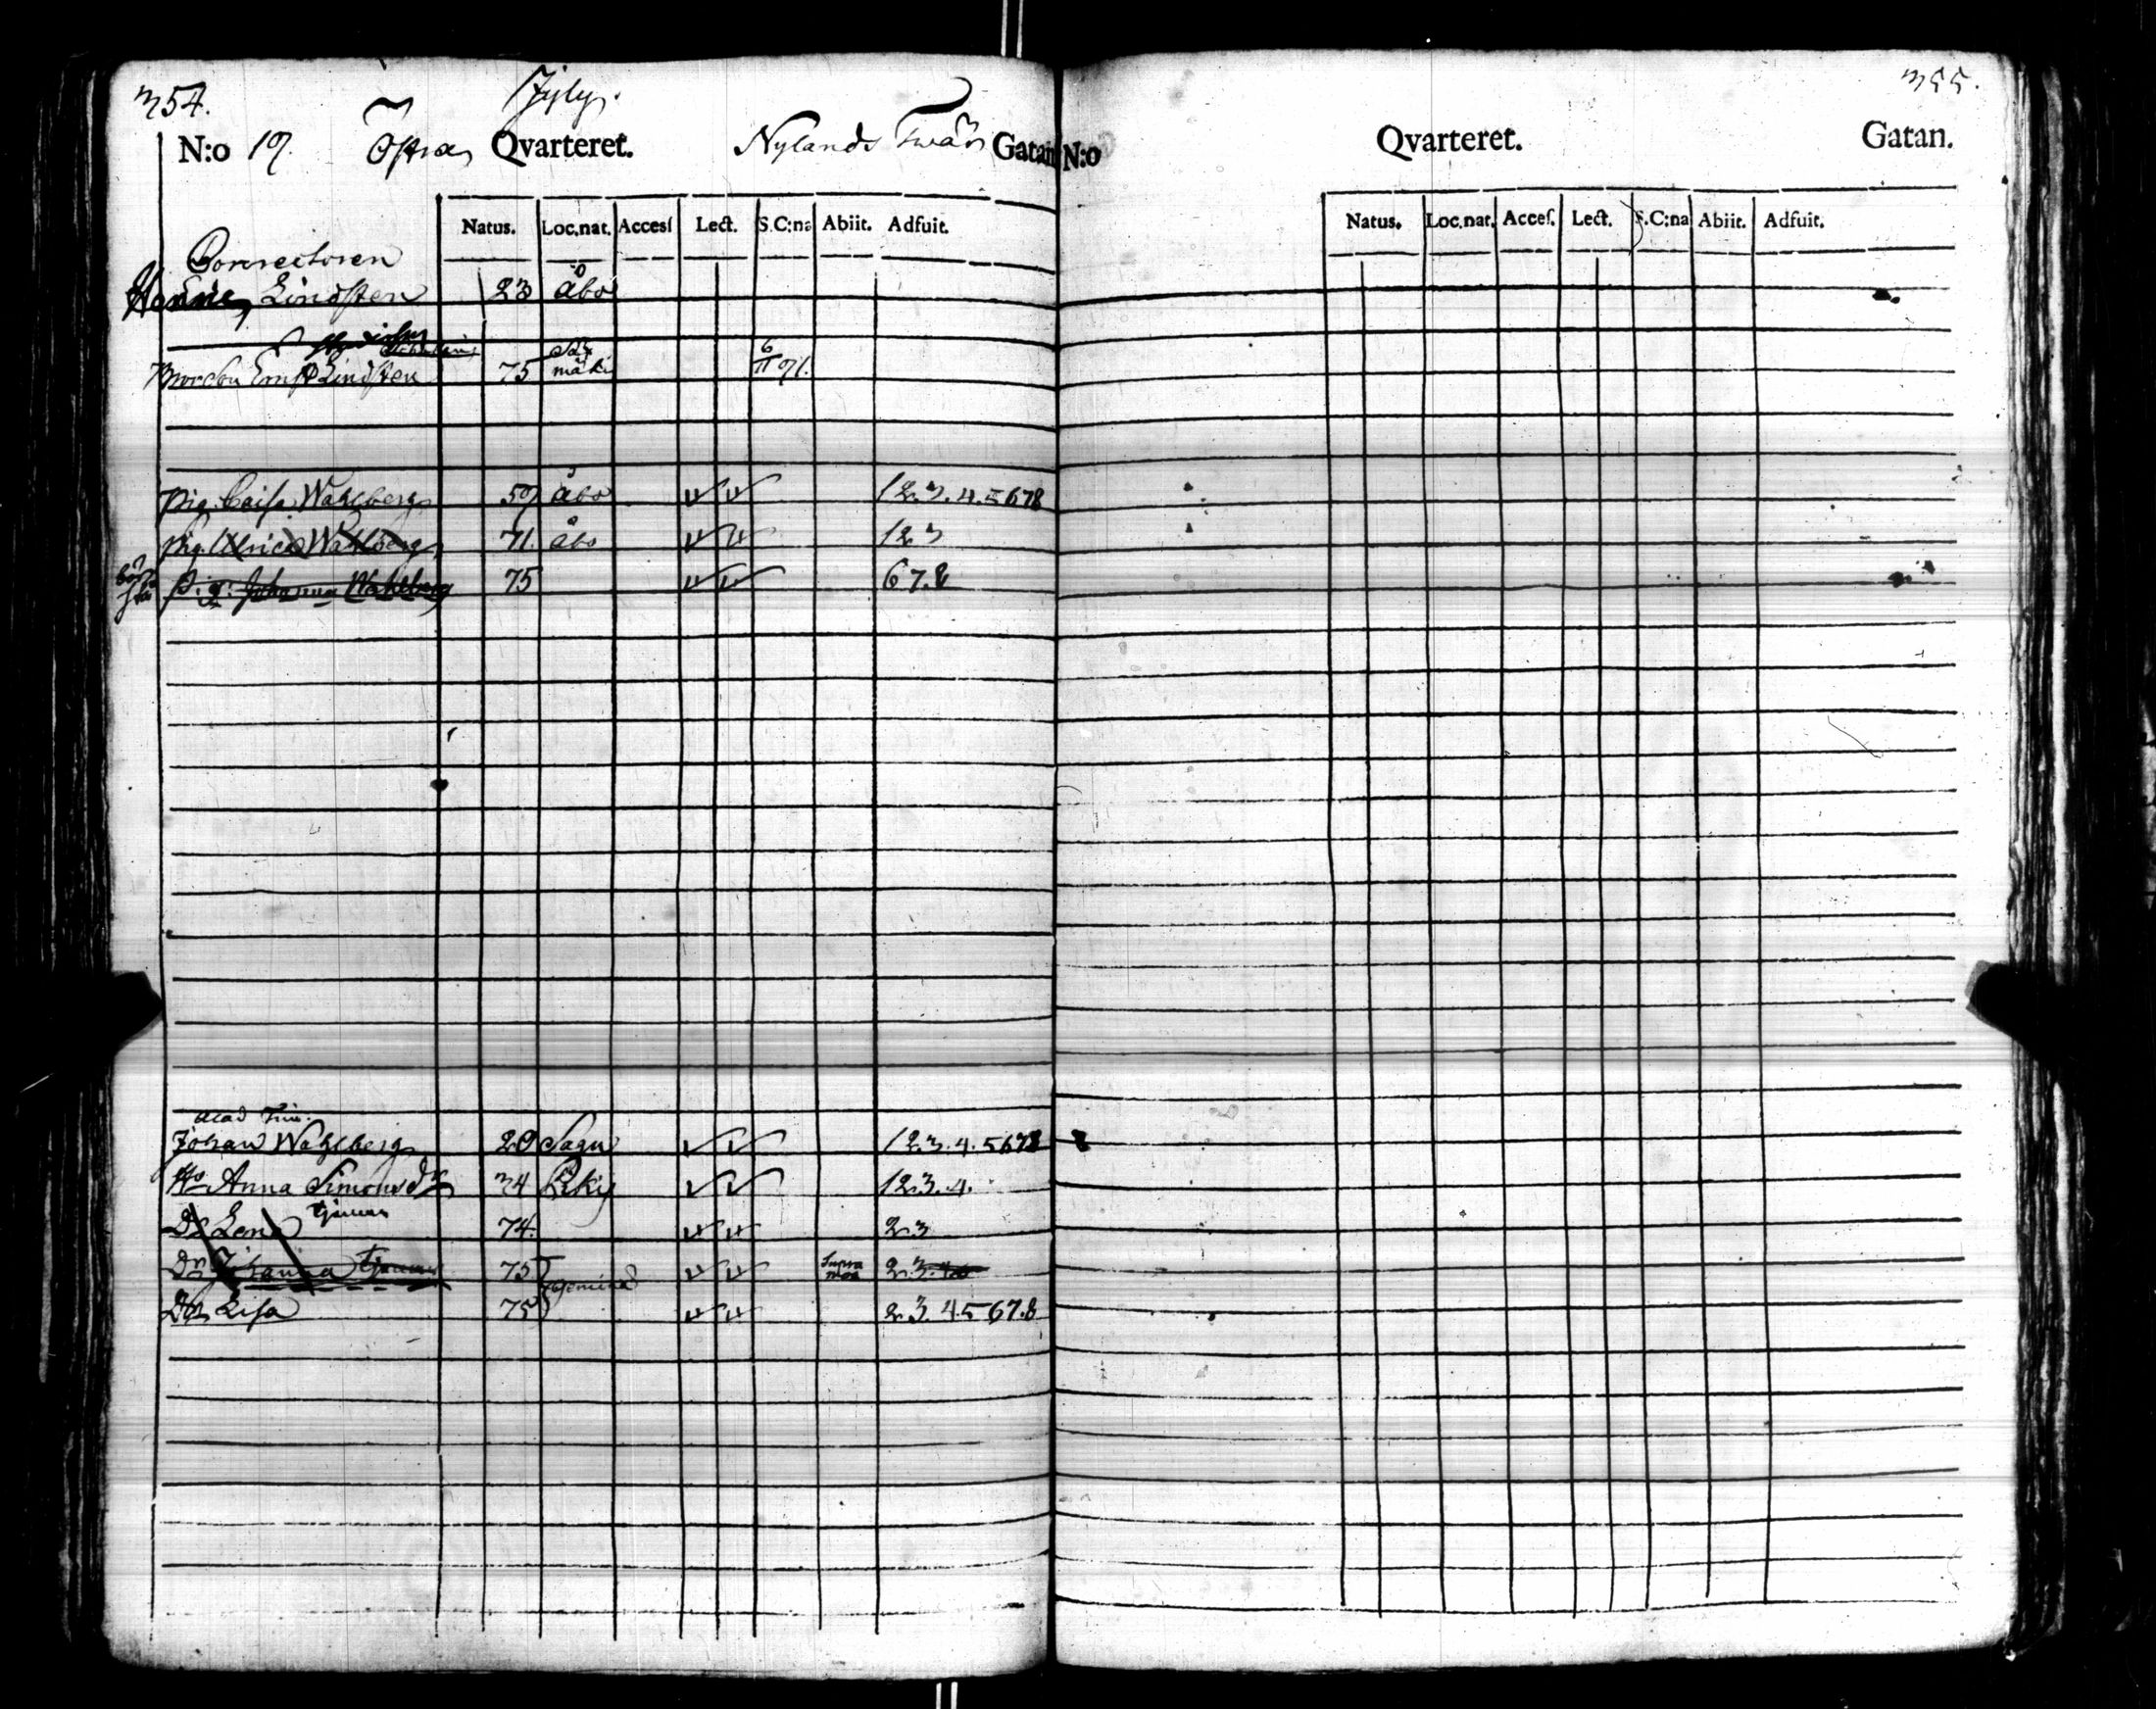 354.
N:o 19. Östra Qvarteret. Nylands Twär Gatan
Natus. Loc.nat. Accesſ Lect. S.C:na Abiit. Adfuit.
Conrectoren
Lindsten 23 Åbo
Ernst Lindsten 75 mäki 6/11 91.
Pig. Caisa Wahlberg 59 Åbo 1 2. 3. 4. 5 6 7 8
Pig. Ulrica Wahlberg 71. Åbo 1 2 3
P:g: Johanna Wahlberg 75 6 7. 8
Acad
Johan Wahlberg 29 Sagu 1 2. 3. 4. 5 6 7 8
Ho Anna Simonsdr 34 Pikis 1 2. 3. 4.
Dr Lena 74. 2 3
Dr Johanna 75 2. 3. 4
Dr Lisa 75 2 3. 4. 5 6 7. 8
355.
N:o Qvarteret. Gatan.
Natus. Loc.nat. Accesſ. Lect. S.C:na Abiit. Adfuit.